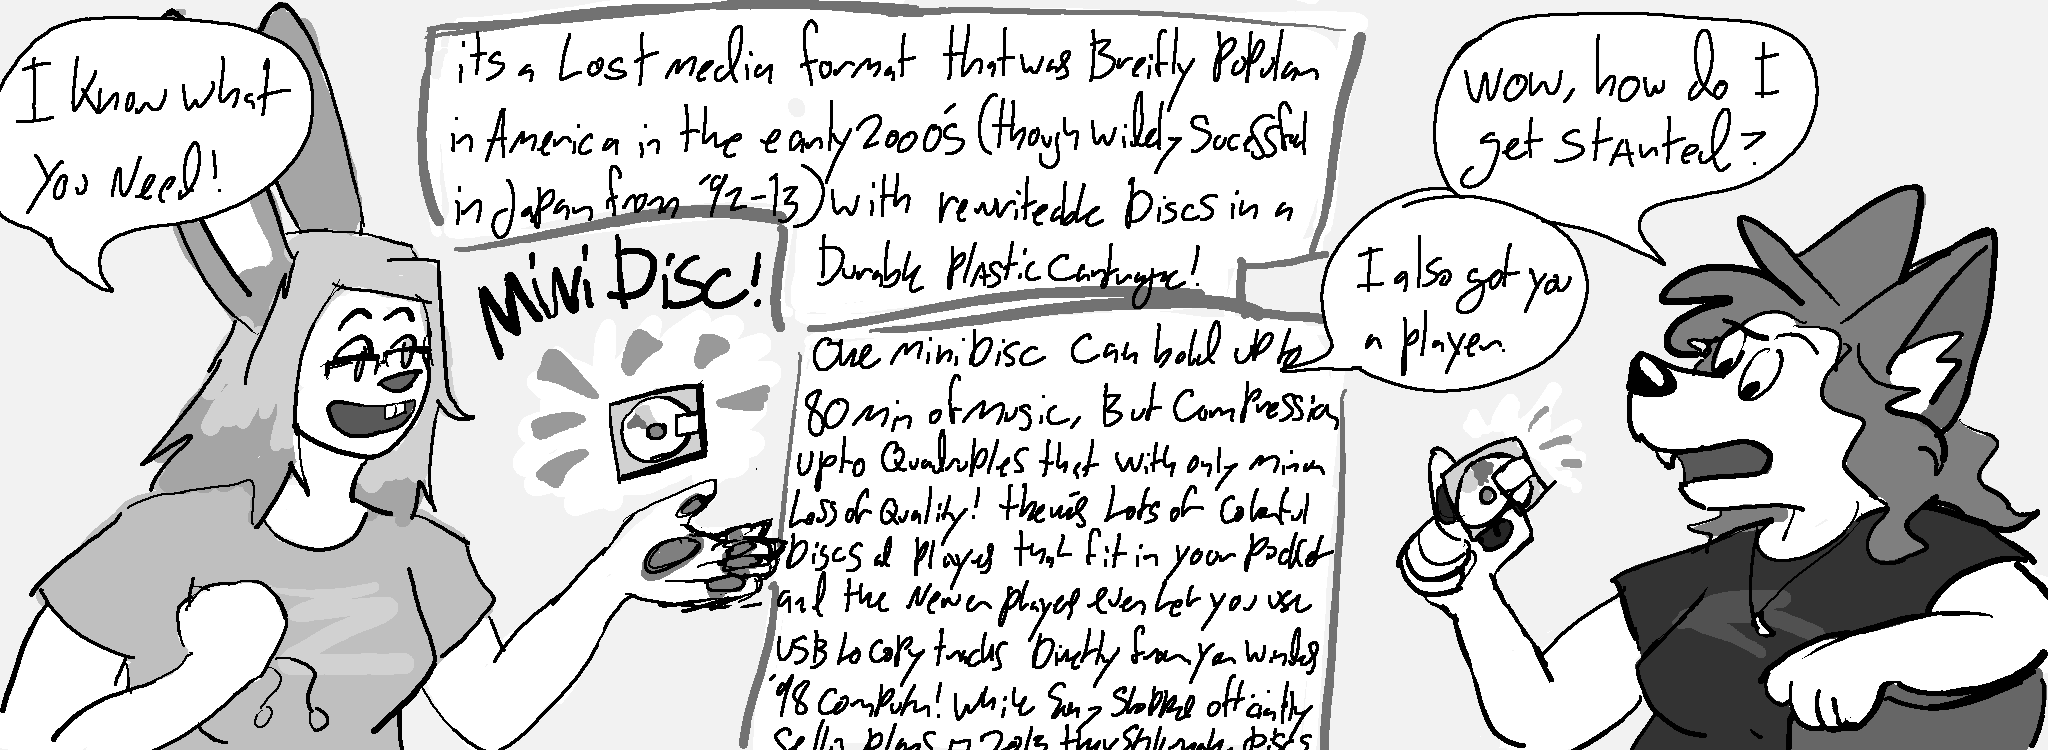 I know what
you need!
its a Lost media format that was Breifly Popular
in America in the early 2000's (though wildly Sucessful
in Japan from '92-13) with rewriteable Discs in a
Durable Plastic Cartrage!
MINI DISC!
wow, how do I
get started?
I also got you
a player.
One miniDisc can hold up to
80 min of music, But Compression
up to Quadruples that with only minor
Loss of Quality! there's Lots of Colorful
Discs & players that fit in your Pocket
and the Newer players even let you use
USB to copy tracks Directly from your windows
'98 Computer! while Sony Stopped officially
Selling players in 2013 they still make Discs